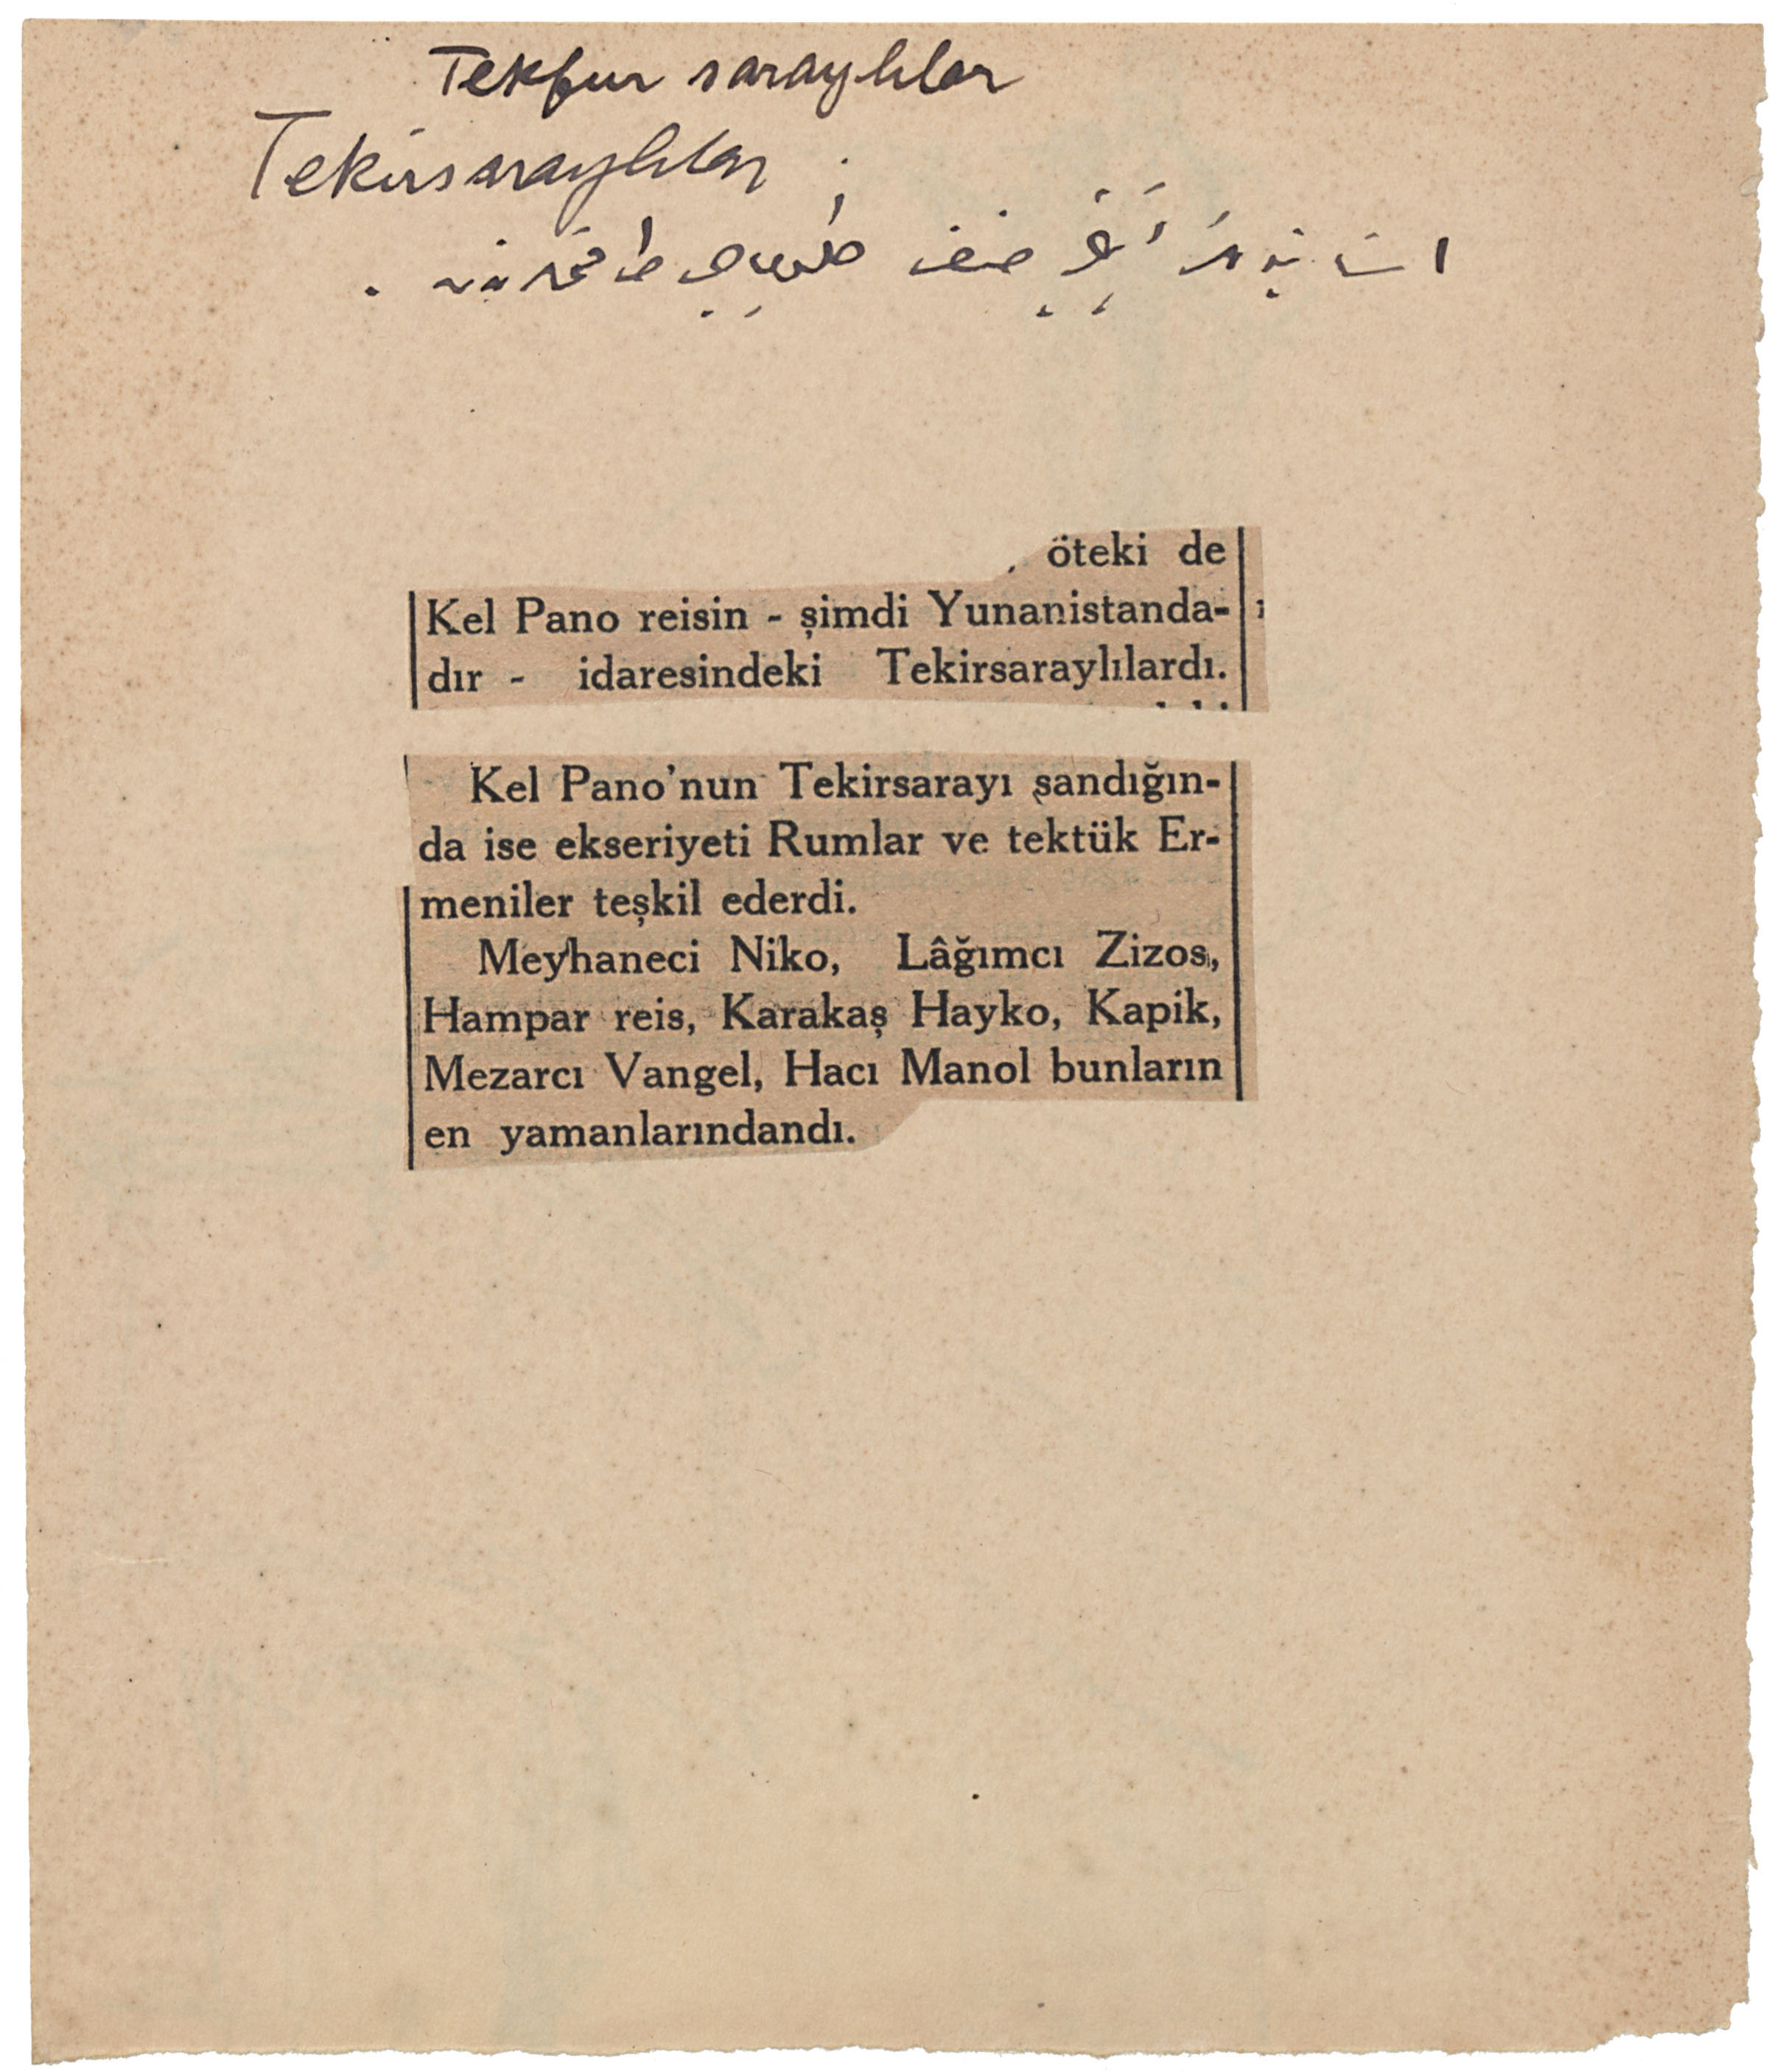 Tekfur saraylılar
Tekirsaraylılar
طاقمندن
öteki de
Kel Pano reisin - şimdi Yunanistanda-
dır - idaresindeki Tekirsaraylılardı.
Kel Pano'nun Tekirsarayı sandığın-
da ise ekseriyeti Rumlar ve tektük Er-
meniler teşkil ederdi.
Meyhaneci Niko, Lâğımcı Zizos,
Hampar reis, Karakaş Hayko, Kapik,
Mezarcı Vangel, Hacı Manol bunların
en yamanlarındandı.